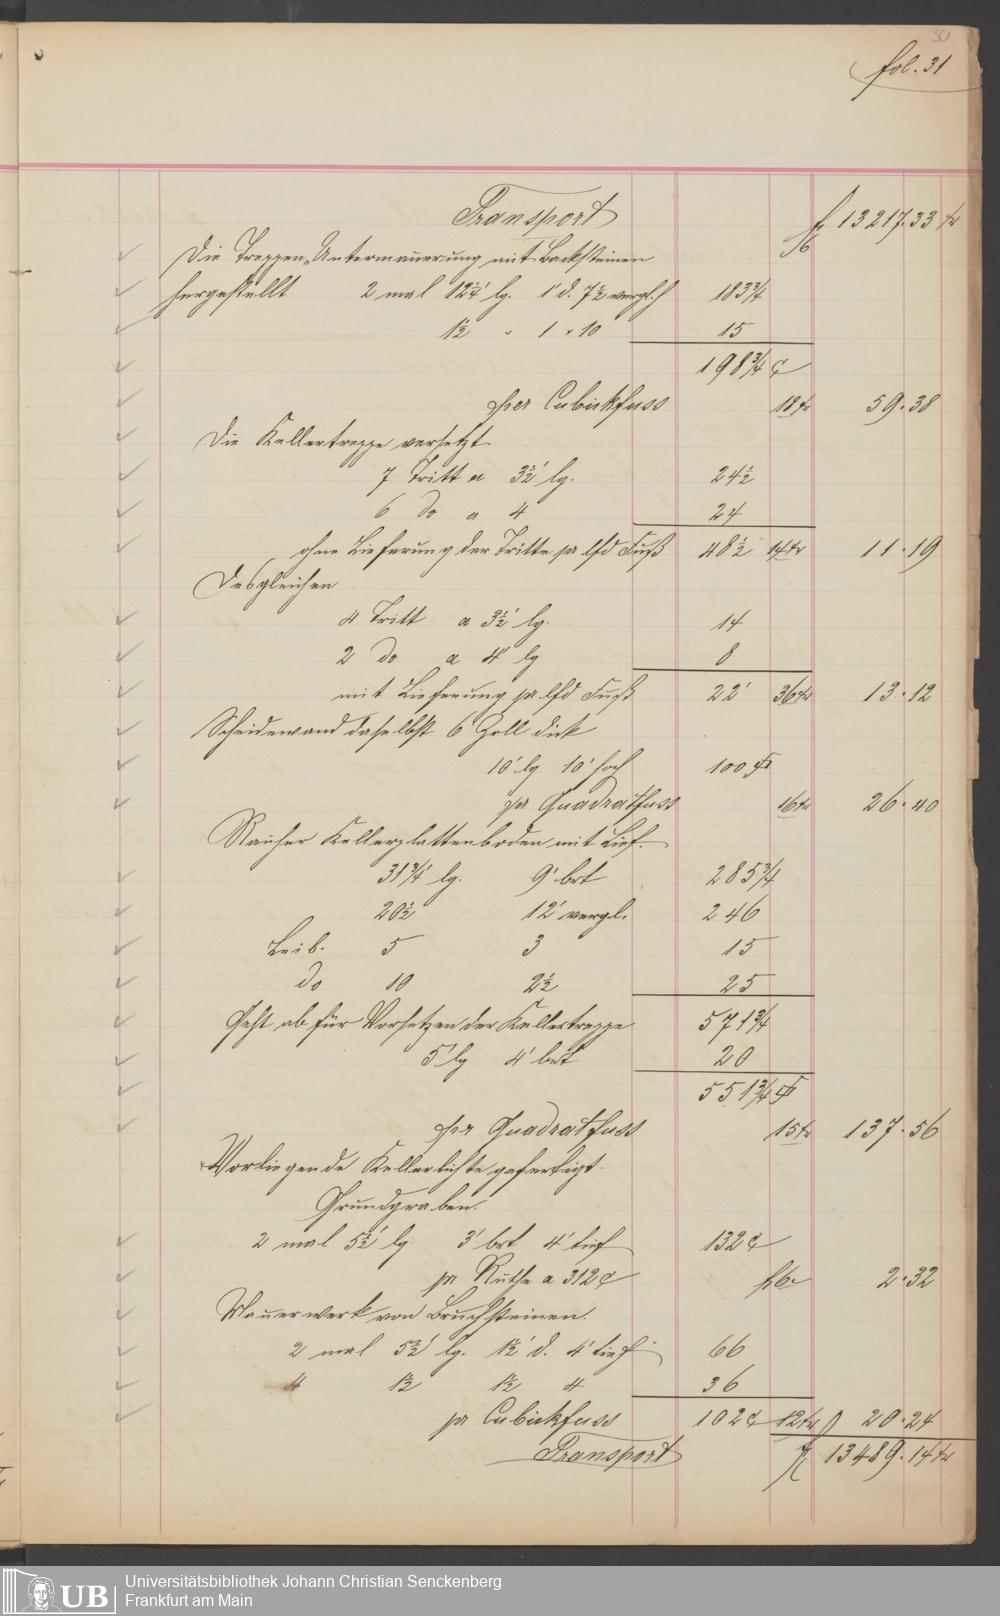 fol. 31
Transport fl 13217.33 kr
Die Treppen-Untermauerung mit Backsteinen
hergestellt 2 mal 12¼' lg. 1' d. 7½ vergl. h 183¾
1½ " 1 " 10 15
198¾ c
per Cubickfuss 18 kr 59.38
Die Kellertreppe versetzt.
7 Tritt a 3½' lg. 24½
6 do a 4 24
ohne Lieferung der Tritte pr lfd Fuß 48½ 14 kr 11.19
Desgleichen
4 Tritt a 3½' lg. 14
2 do a 4' lg 8
mit Lieferung pr lfd Fuß 22' 36 kr 13.12
Scheidewand daselbst 6 Zoll dick
10' lg 10' hoch 100
pr Quadratfuss 16 kr 26.40
Rauher Kellerplattenboden mit Lief.
31¾' lg. 9' brt 285¾
20½ 12' vergl. 246
Leib. 5 3 15
do 10 2½ 25
Geht ab für Vorsetzen der Kellertreppe 571¾
5' lg 4' brt 20
551¾
per Quadratfuss 15 kr 137.56
Vorliegende Kellerlichte gefertigt.
Grundgraben.
2 mal 5½' lg. 3' brt 4' tief 132 c
pr Ruthe a 312 c fl 6.- 2.32
Mauerwerk von Bruchsteinen.
2 mal 5½' lg. 1½' d. 4' tief 66
4 1½ 1½ 4 36
pr Cubickfuss 102 c 12 kr 20.24
Transport fl 13489.14 kr
UB
Universitätsbibliothek Johann Christian Senckenberg
Frankfurt am Main